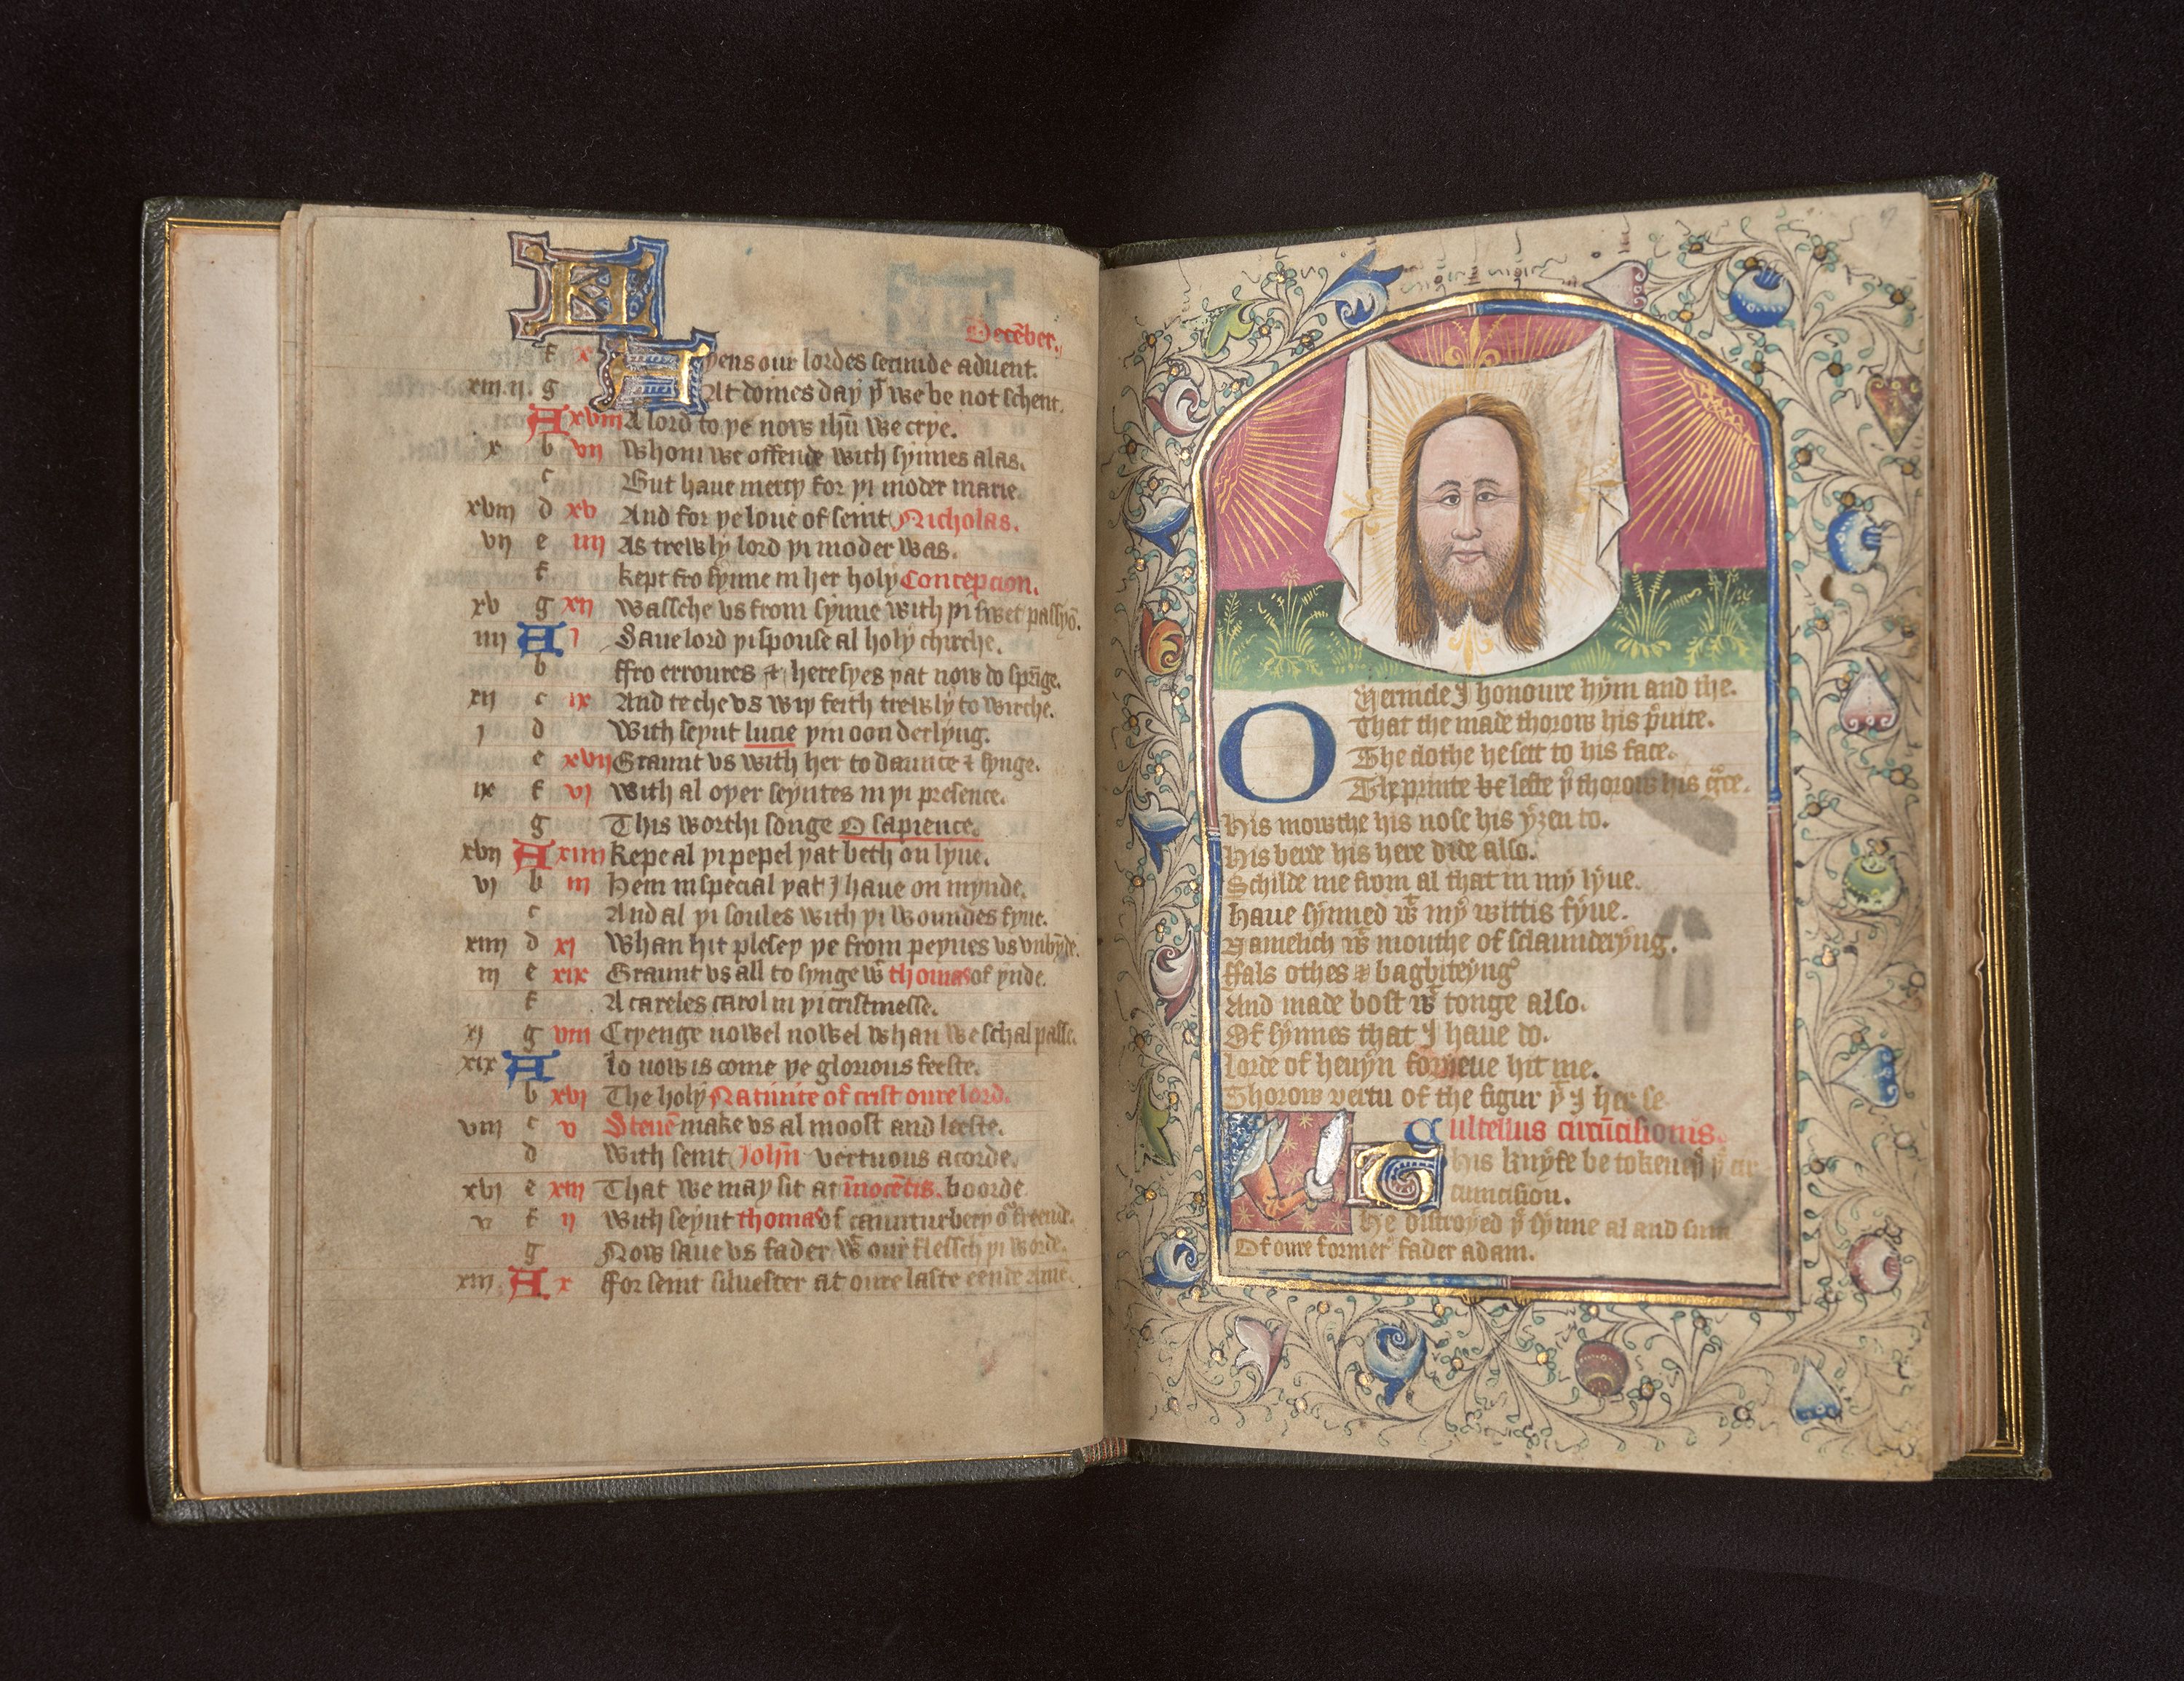 Decēber.
f x pens our lordes secunde aduent.
xiii ij. g At domes day þͭ we be not schent.
A xviii A lord to þe now ihū we crye.
x b vii Whom we offende with synnes alas.
c But haue mercy for þi moder marie.
xviii d xv And for þe loue of seint Nicholas.
vii e iiii As trewly lord þi moder was.
f kept fro synne in her holy Concepcion.
xv g xii Wassche vs from synne with þi swet passyō.
iiii A i Saue lord þi spouse al holy chirche.
b ffro erroures & heresyes þat now do sprīge.
xii c ix And teche vs wiþ feith trewly to wirche.
j d With seynt lucie þin oon derlyng.
e xvii Graunt vs with her to daunce & synge.
ix f vi With al oþer seyntes in þi presence.
g This worthi songe O sapience.
xvii A xiiii kepe al þi pepel þat beth on lyue.
vi b iii Hem in special þat I haue on mynde.
c And al þi soules with þi woundes fyue.
xiiii d xi Whan hit pleseþ þe from peynes vs vnbynde.
iii e xix Graunt vs all to synge wͭ thomas of ynde.
f A careles carol in þi cristmesse.
xi g viii Cryenge nowel nowel whan we schal passe.
xix A lo now is come þe glorious feeste.
b xvi The holy Natiuite of crist oure lord.
viii c v Steuē make vs al moost and leeste.
d With seint John vertuous acorde.
xvi e xiii That we may sit at īnocētis boorde
v f ii With seynt thomas of caunturbery oͬ freende.
g Now saue vs fader wͭ our flessch þi worde.
xiii A x ffor seint siluester at oure laste eende amē.
O Vernicle I honoure hym and the.
That the made thorow his pͥuite.
The clothe he sett to his face.
The printe he lefte þͬ thorow his gͣce.
His mowthe his nose his yzen to.
His bere his here dide also.
Schilde me from al that in my lyue.
haue synned wͭ my wittis fyue.
Namelich wͭ mouthe of sclaunderyng.
ffals othes & bagbiteyng
And made bost wͭ tonge also.
Of synnes that I haue do.
Lorde of heuyn foryeue hit me.
Thorow vertu of the figur þͭ I her se
Cultellus circūcisionis.
This knyfe be tokeneþ þͤ cir
cumcision.
He distroyed þͤ synne al and sum
Of oure former fader adam.